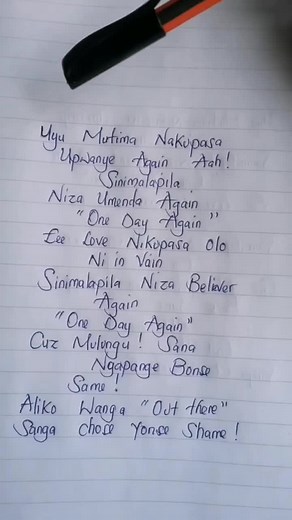 Uyu Mutima Nakupasa
Upwanye Again Aah!
Sinimalapila
Niza Umenda Again
"One Day Again"
Eee Love Nikupasa Olo
Ni in Vain
Sinimalapila Niza Beliver
Again
"One Day Again"
Cuz Mulungu! Sana
Ngapange Bonse
Same!
Aliko Wanga "Out there"
Sanga chose Yonse Shame!